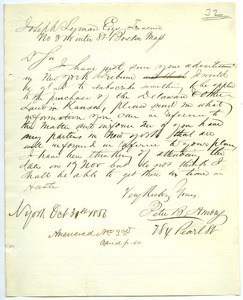 32
Joseph Lyman Esq Treasurer
No 3 Winter St Boston Mass
D Sir
I have just seen your advertisement
in New York Tribune I would
like to subscribe something to be applied
to the purchase of the Delaware & other
Lands in Kansas, please send me what
information you can in reference to
the matter and inform me if you have
any parties in New York that are
well informed in reference to your plans
I have been thinking of attending the
Sale on 17 Nov but do not think I
shall be able to get there in time in
haste
Very Respy Yours
Peter B
N York Oct 30th 1856
184 Pearl St
Answered Nov 3rd